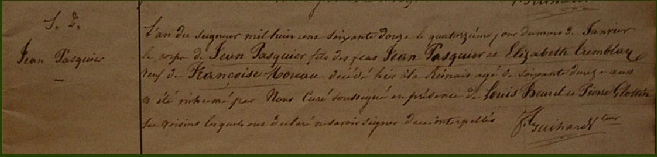 S. D.
Jean Pasquier
L'an du Seigneur mil huit cent soixante douze le quatorzième jour du mois de Janvier
le corps de Jean Pasquier fils des feus Jean Pasquier et Elizabeth Tremblay
veuf de Françoise Moreau décédé hier à la agé de soixante douze ans
a été inhumé par Nous Curé soussigné en présence de Louis et Pierre
ses voisins lesquels ont déclaré ne savoir signer de ce interpellés
Guihard